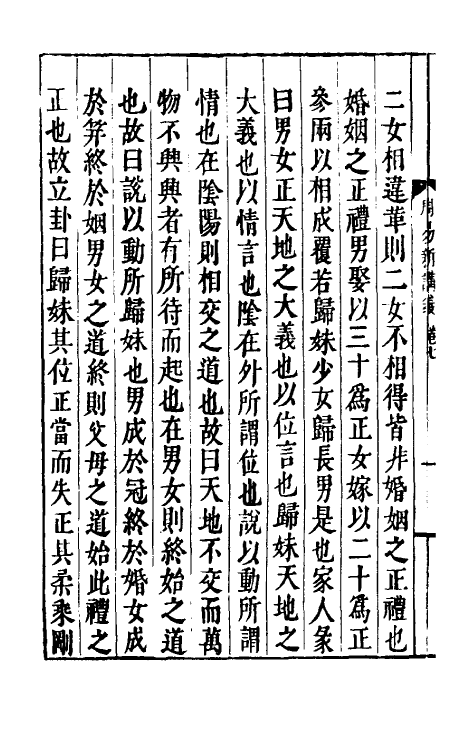 周易新講義 卷九
二女相違革則二女不相得皆非婚姻之正禮也
婚姻之正禮男娶以三十爲正女嫁以二十爲正
參兩以相成覆若歸妹少女歸長男是也家人彖
曰男女正天地之大義也以位言也歸妹天地之
大義也以情言也陰在外所謂位也說以動所謂
情也在陰陽則相交之道也故曰天地不交而萬
物不興興者有所待而起也在男女則終始之道
也故曰說以動所歸妹也男成於冠終於婚女成
於笄終於姻男女之道終則父母之道始此禮之
正也故立卦曰歸妹其位正當而失正其柔乘剛